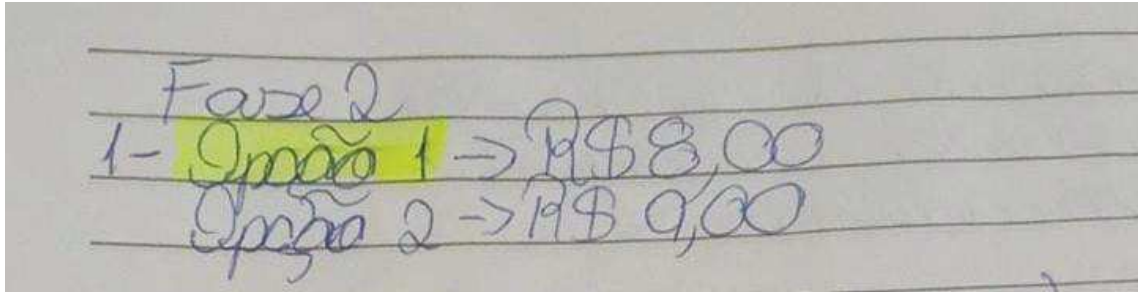 Fase 2
1- Opção 1 -> R$8,00
Opção 2 -> R$ 9,00